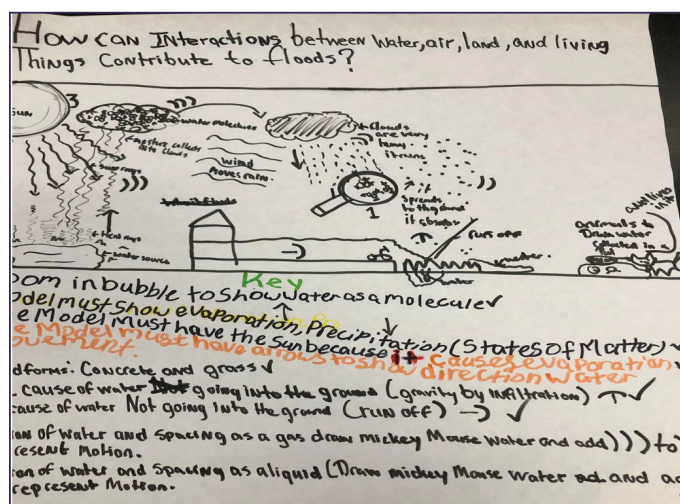 How can Interactions between water, air, land, and living
Things Contribute to floods?
SUN
3
water molecules
moisture collects
into clouds
Sun rays
wind
moves rain
clouds
are very
heavy
it rains
1
it
spreads
to the ground
it absorbs
run off
water
water
Heat rays
water source
animals
Draw water
collected in a
Key
oom in bubble to show water as a molecule ✓
odel must show evaporation, Precipitation (States Of Matter) ✓
e Model must have the sun because it causes evaporation
e Model must have arrows to show direction water
ovement.
dforms: Concrete and grass ✓
cause of water going into the ground (gravity by infiltration) ↑ ✓
cause of water Not going into the ground (run off) → ✓
ion of water and spacing as a gas draw mickey Mouse water and add ))) to
resent Motion.
ion of water and spacing as a liquid (Draw mickey Mouse water and ad
represent Motion.